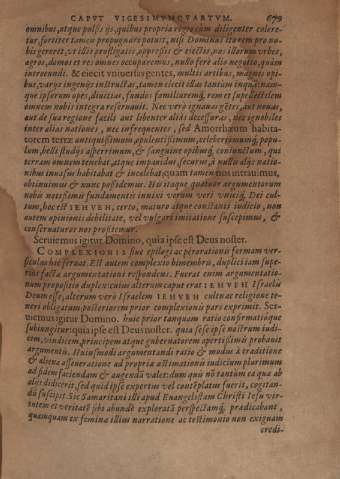 CAPVT VIGESIMVMQVARTVM. 679
omnibus, atque posse ijs, quibus propria regio cum diligenter colere-
tur, fortiter tamen propugnare potuit, nisi Dominus ita rem pro no-
bis gereret, vt illis profligatis, oppressis & eiectis, nos illarum vrbes,
agros, domos et res omnes occuparemus, nullo ferè alio negotio, quàm
introeundi. & eiecit vniuersas gentes, multis artibus, magnis opi-
bus, vario ingenijs instructas, tamen eiecit illas tantùm inquà:nam-
que ipsorum opes, diuitias, fundos familiaremq́; rem et supellectilem
omnem nobis integra reseruauit. Nec verò ignauas gētes, aut nouas,
aut de sua regione facilè aut libenter aliò decessuras, nec ignobiles
inter alias nationes, nec infrequentes, sed Amorrhæum habita-
torem terræ antiquissimum, opulentissimum, celeberrimumq́;, popu-
lum, belli studijs asperrimum, & sanguine opibusq́; coniunctum, qui
terram omnem tenebat, atque impauidus, securus, à nullis alijs natio-
nibus inuasus habitabat & incolebat, quam tamen nos intrauimus,
obtinuimus & nunc possidemus. His itaque quatuor argumentorum
nobis notissimis fundamentis innixi verum veri vniciq́; Dei cul-
tum, hoc est IEHVEH, certo, maturo atque constanti iudicio, non
autem opinionis debilitate, vel vulgari imitatione suscepimus, &
conseruaturos nos profitemur.
Seruiemus igitur Domino, quia ipse est Deus noster.
COMPLEXIONIS siue epilogi ac perorationis formam ver-
siculus hic seruat. Est autem complexio bimembris, duplici iam supe-
rius factæ argumentationi respondens. Fuerat enim argumentatio-
num propositio duplex: cuius alterum caput erat IEHVEH Israelis
Deum esse, alterum verò Israelem IEHVEH cultu ac religione te-
neri obligatum: posteriorem prior complexionis pars exprimit. Ser-
uiemus igitur Domino. huic prior tanquam ratio confirmatióque
subiungitur: quia ipse est Deus noster. quia sese ipse nostrum iudi-
cem, vindicem, principem atque gubernatorem apertissimis probauit
argumentis. Huiusmodi argumentandi ratio & modus à traditione
& aliena asseueratione ad propria æstimationis iudicium plurimum
ad fidem faciendam & augendā valet: dum quis nō tantùm ea quæ ab
alijs didicerit, sed quid ipse expertus vel contēplatus fuerit, cogitan-
dū suscipit. Sic Samaritani illi apud Euangelistam Christi Iesu vir-
tutem et veritatē sibi abundè exploratā perspectamq́; prædicabant,
quamquam ex femina illius narratione ac testimonio non exiguam
credi-